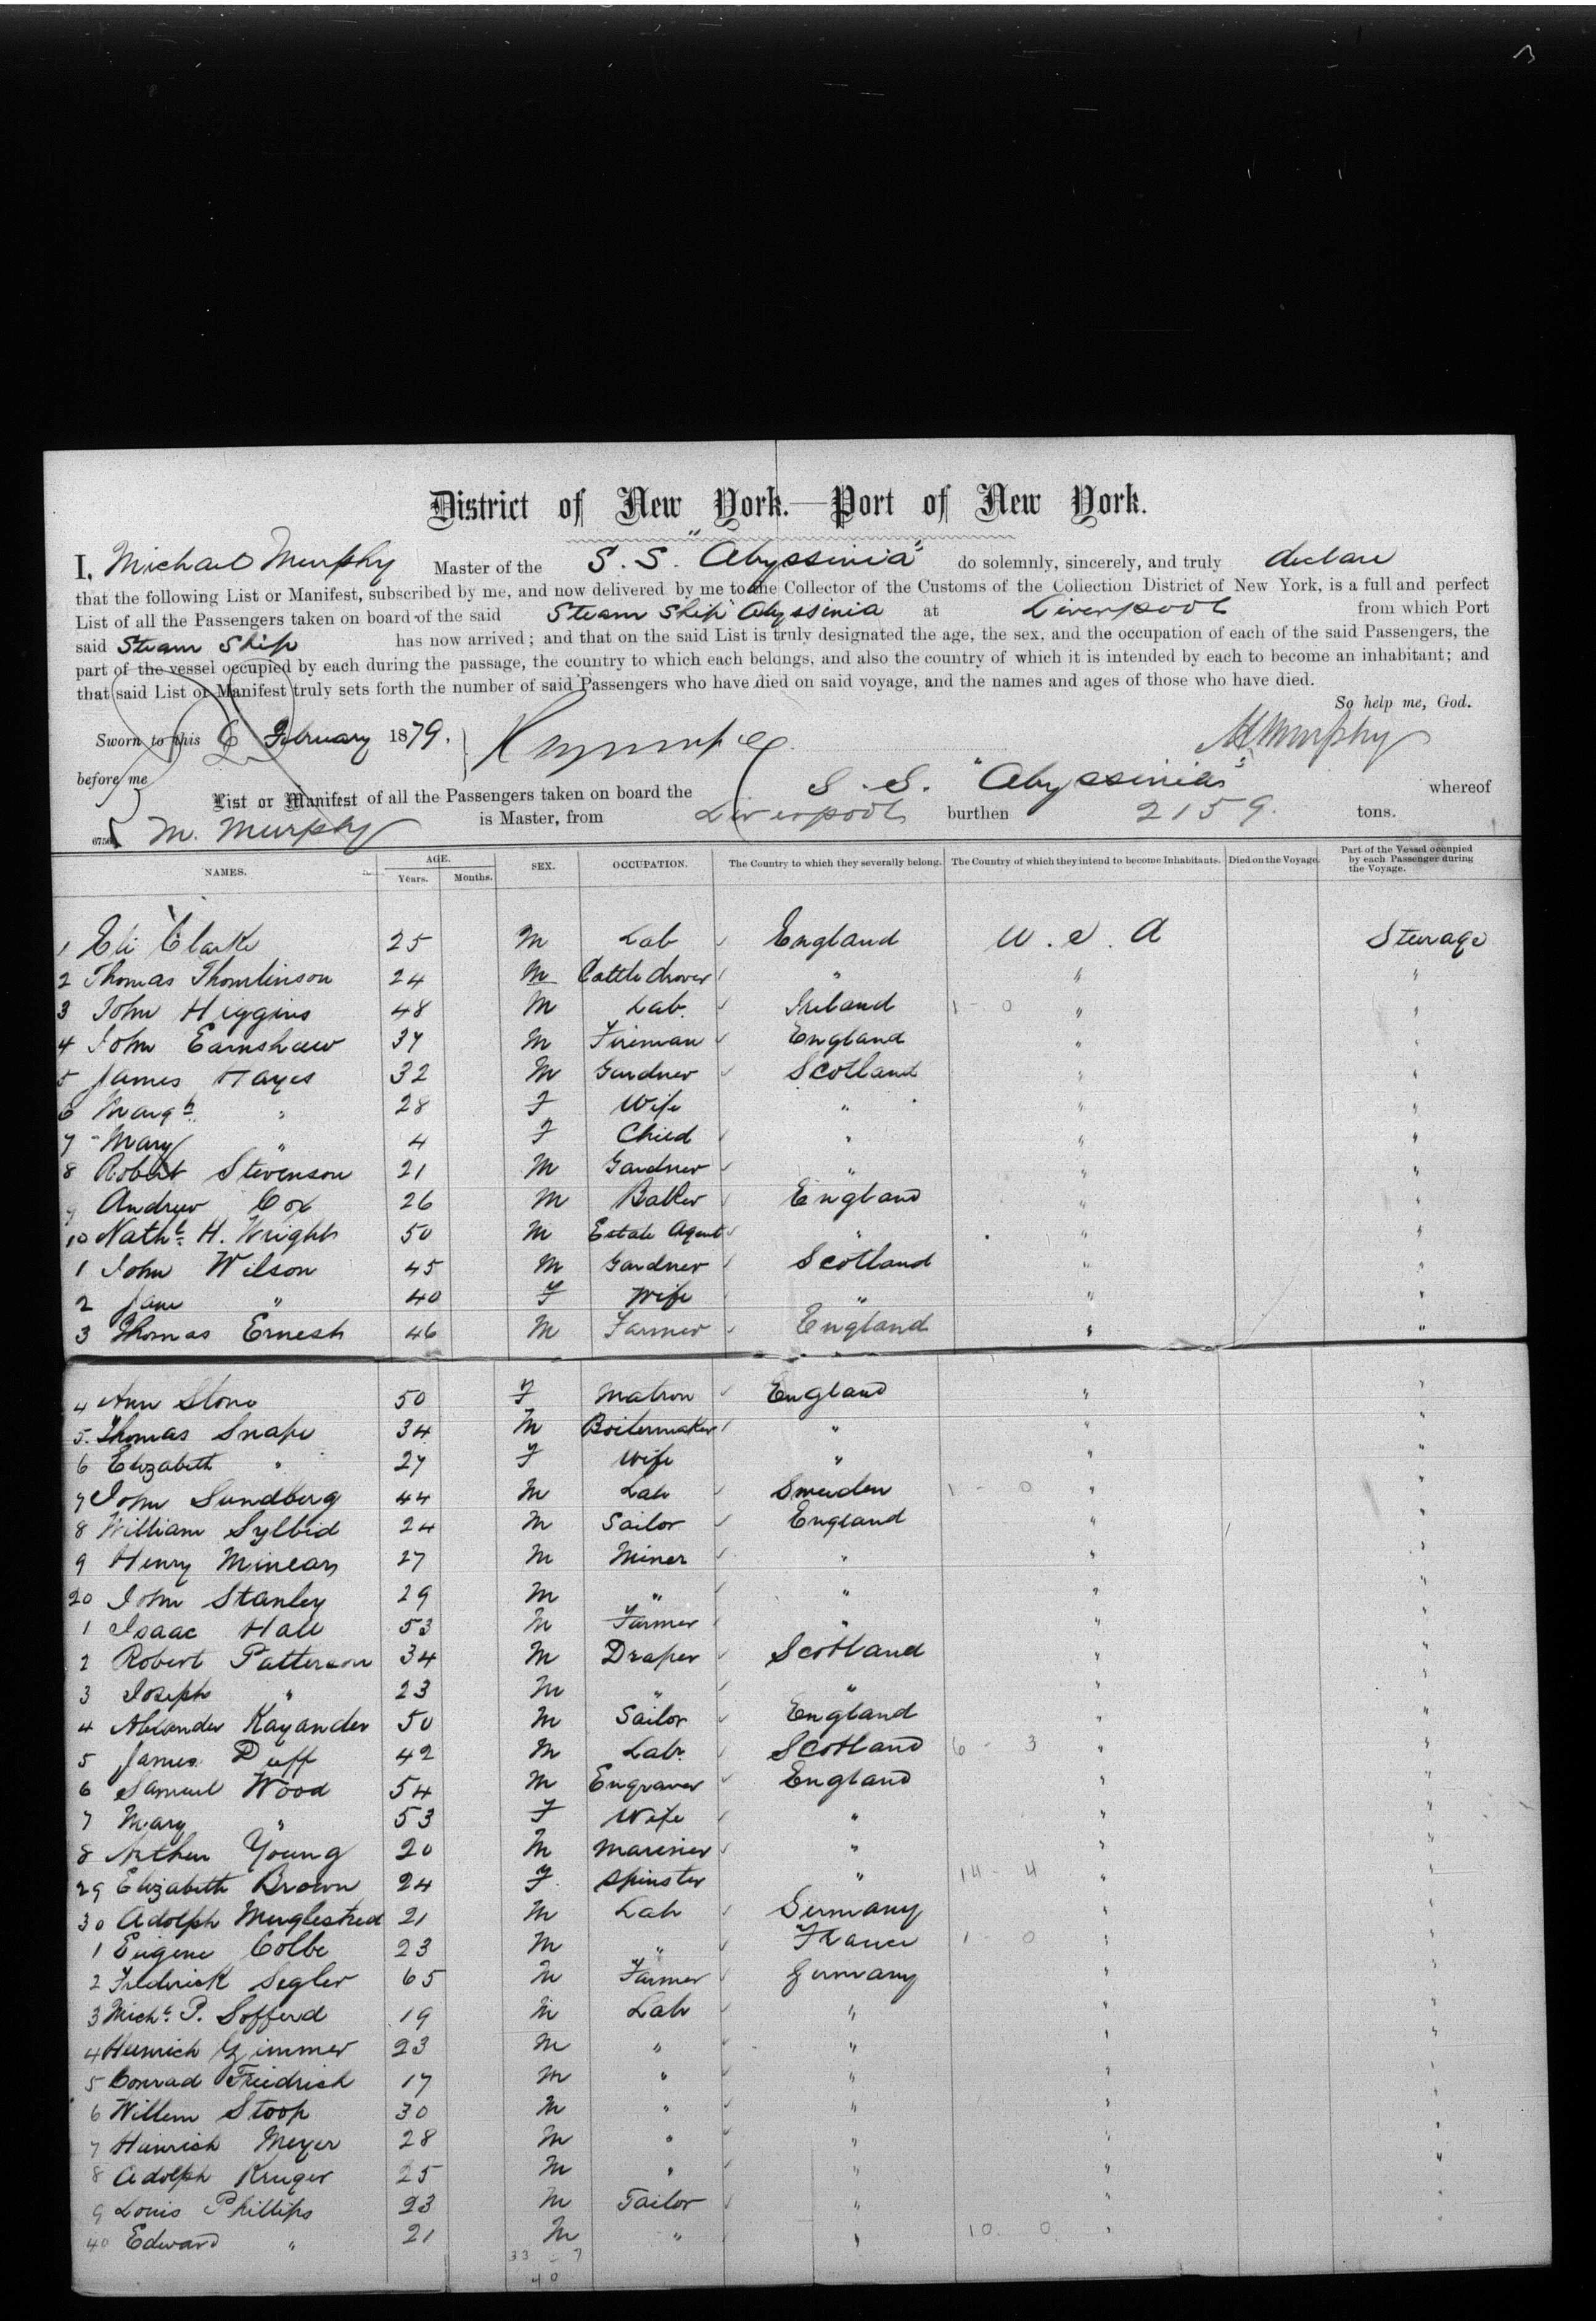 District of New York.—Port of New York.
I, Michael Murphy Master of the S. S. "Abyssinia" do solemnly, sincerely, and truly declare
that the following List or Manifest, subscribed by me, and now delivered by me to the Collector of the Customs of the Collection District of New York, is a full and perfect
List of all the Passengers taken on board of the said Steam Ship Abyssinia at Liverpool from which Port
said Steam Ship has now arrived; and that on the said List is truly designated the age, the sex, and the occupation of each of the said Passengers, the
part of the vessel occupied by each during the passage, the country to which each belongs, and also the country of which it is intended by each to become an inhabitant; and
that said List or Manifest truly sets forth the number of said Passengers who have died on said voyage, and the names and ages of those who have died.
So help me, God.
Sworn to this 6 February 1879. M. Murphy
before me
List or Manifest of all the Passengers taken on board the S. S. "Abyssinia" whereof
M. Murphy is Master, from Liverpool burthen 2159. tons.
NAMES. AGE. Years. Months. SEX. OCCUPATION. The Country to which they severally belong. The Country of which they intend to become Inhabitants. Died on the Voyage. Part of the Vessel occupied by each Passenger during the Voyage.
1 Eli Clarke 25 M Lab England U. S. A Steerage
2 Thomas Thomlinson 24 M Cattle drover " " "
3 John Higgins 48 M Lab. Ireland 1 - 0 " "
4 John Earnshaw 37 M Fireman England " "
5 James Hayes 32 M Gardner Scotland " "
6 Margt " 28 F Wife " " "
7 Mary " 4 F Child " " "
8 Robert Stevenson 21 M Gardner " " "
9 Andrew Cox 26 M Baker England " "
10 Nathl H. Wright 50 M Estate Agent " " "
1 John Wilson 45 M Gardner Scotland " "
2 Jane " 40 F Wife " " "
3 Thomas Ernest 46 M Farmer England " "
4 Ann Stone 50 F Matron England " "
5. Thomas Snape 34 M Boilermaker " " "
6 Elizabeth " 27 F Wife " " "
7 John Sundberg 44 M Lab Sweden 1 - 0 " "
8 William Sylbid 24 M Sailor England " "
9 Henry Minears 27 M Miner " " "
20 John Stanley 29 M " " " "
1 Isaac Hall 53 M Farmer " " "
2 Robert Patterson 34 M Draper Scotland " "
3 Joseph " 23 M " " " "
4 Alexander Kayander 50 M Sailor England " "
5 James Duff 42 M Labr Scotland 6 - 3 " "
6 Samuel Wood 54 M Engraver England " "
7 Mary " 53 F Wife " " "
8 Arthur Young 20 M Mariner " " "
29 Elizabeth Brown 24 F. Spinster " 14 - 4 " "
30 Adolph 21 M Lab Germany " "
1 Eugene Colbe 23 M " France 1 - 0 " "
2 Frederick Segler 65 M Farmer Germany " "
3 Michl P. Sofferd 19 M Lab " " "
4 Heinrich Zimmer 23 M " " " "
5 Conrad Friedrich 17 M " " " "
6 Willem Stoop 30 M " " " "
7 Heinrich Meyer 28 M " " " "
8 Adolph Kruger 25 M " " " "
9 Louis Phillips 23 M Tailor " " "
40 Edward " 21 M " " 10. 0 " "
33 - 7
40